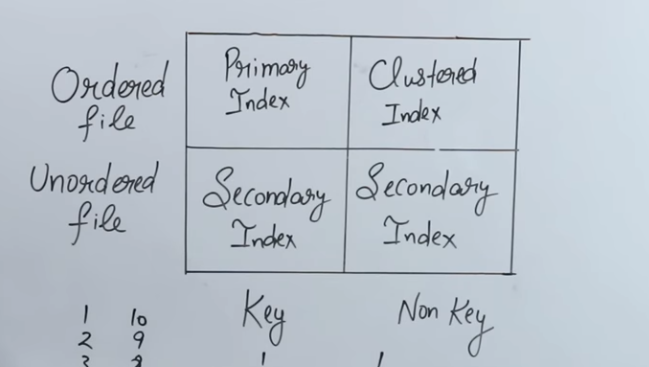 Ordered
file
Primary
Index
Clustered
Index
Unordered
file
Secondary
Index
Secondary
Index
Key
Non Key
1 10
2 9
3 8